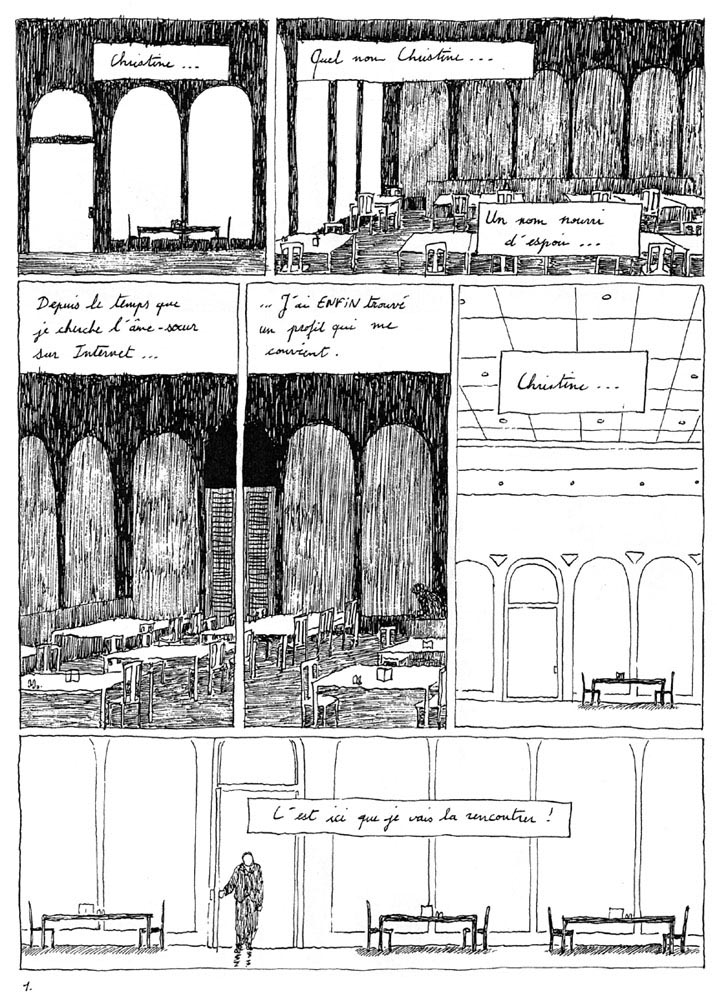 Christine ...
Quel nom Christine ...
Un nom nourri
d'espoir ...
Depuis le temps que
je cherche l'âme-soeur
sur Internet ...
... J'ai ENFIN trouvé
un profil qui me
convient.
Christine ...
C'est ici que je vais la rencontrer !
1.